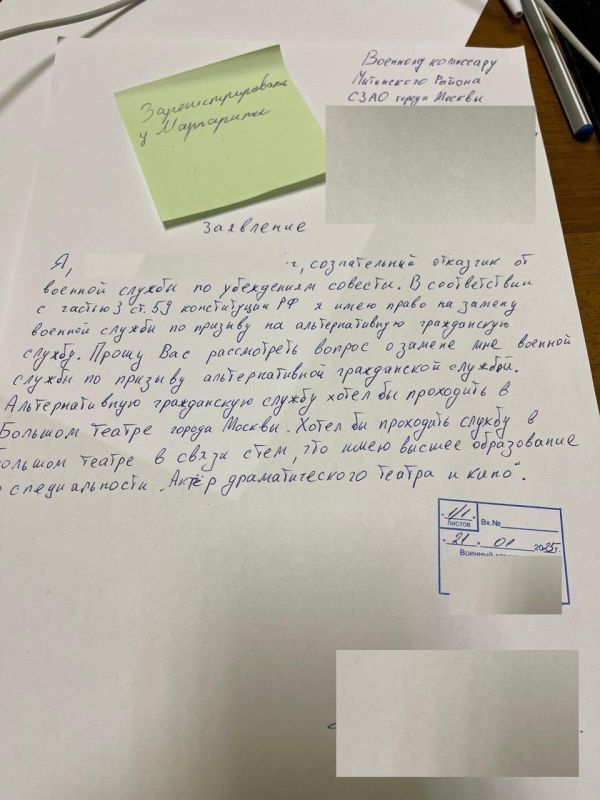 Военному комиссару
Митинского Района
СЗАО города Москвы
Зарегистрировали
у Маргариты
Заявление
Я,
г, сознательный отказчик от
военной службы по убеждениям совести. В соответствии
с частью 3 ст. 59 конституции РФ я имею право на замену
военной службы по призыву на альтернативную гражданскую
службу. Прошу Вас рассмотреть вопрос о замене мне военной
службы по призыву альтернативной гражданской службой.
Альтернативную гражданскую службу хотел бы проходить в
Большом театре города Москвы. Хотел бы проходить службу в
ольшом театре в связи с тем, что имею высшее образование
о специальности „Актёр драматического театра и кино".
1/1
листов
Вх.№
"21" 01 2025г.
Военный